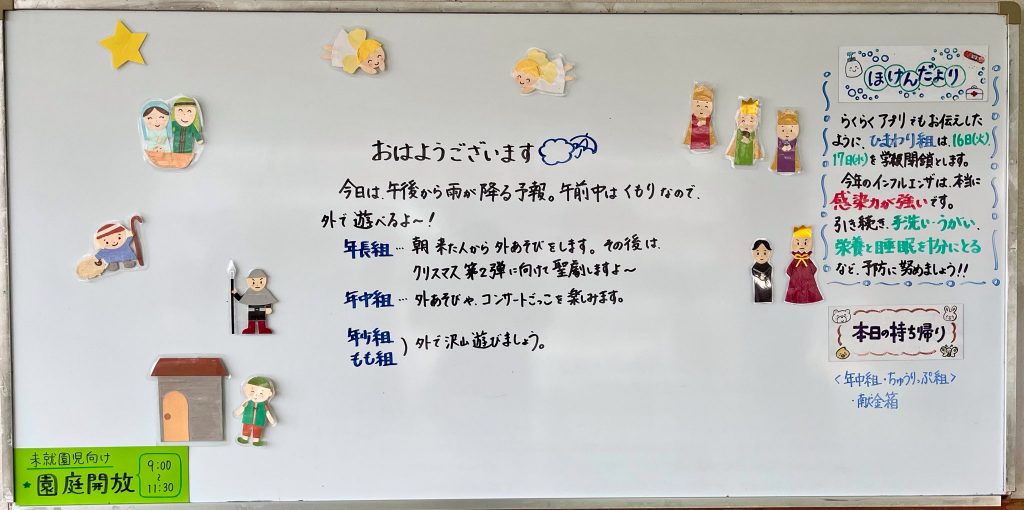 おはようございます
今日は、午後から雨が降る予報。午前中はくもりなので、
外で遊べるよ〜！
年長組…朝来た人から外あそびをします。その後は、
クリスマス第2弾に向けて聖劇しますよ〜
年中組…外あそびや、コンサートごっこを楽しみます。
年少組
もも組
)外で沢山遊びましょう。
ほけんだより
らくらくアプリでもお伝えした
ように、ひまわり組は、16日(火)、
17日(水)を学級閉鎖とします。
今年のインフルエンザは、本当に
感染力が強いです。
引き続き、手洗い・うがい、
栄養と睡眠を十分にとる
など、予防に努めましょう!!
本日の持ち帰り
〈年中組・ちゅうりっぷ組〉
・献金箱
未就園児向け
★園庭開放
9:00
〜
11:30